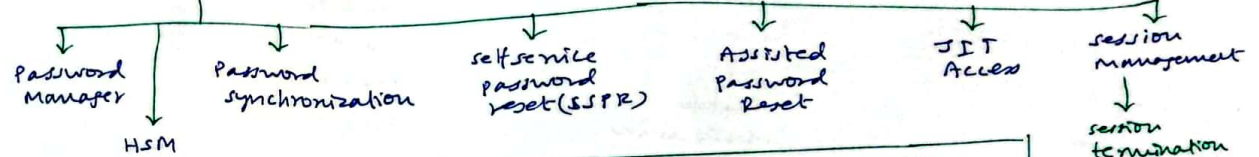 Password
Manager
HSM
Password
synchronization
selfservice
password
reset (SSPR)
Assisted
Password
Reset
JIT
Access
session
Management
session
termination